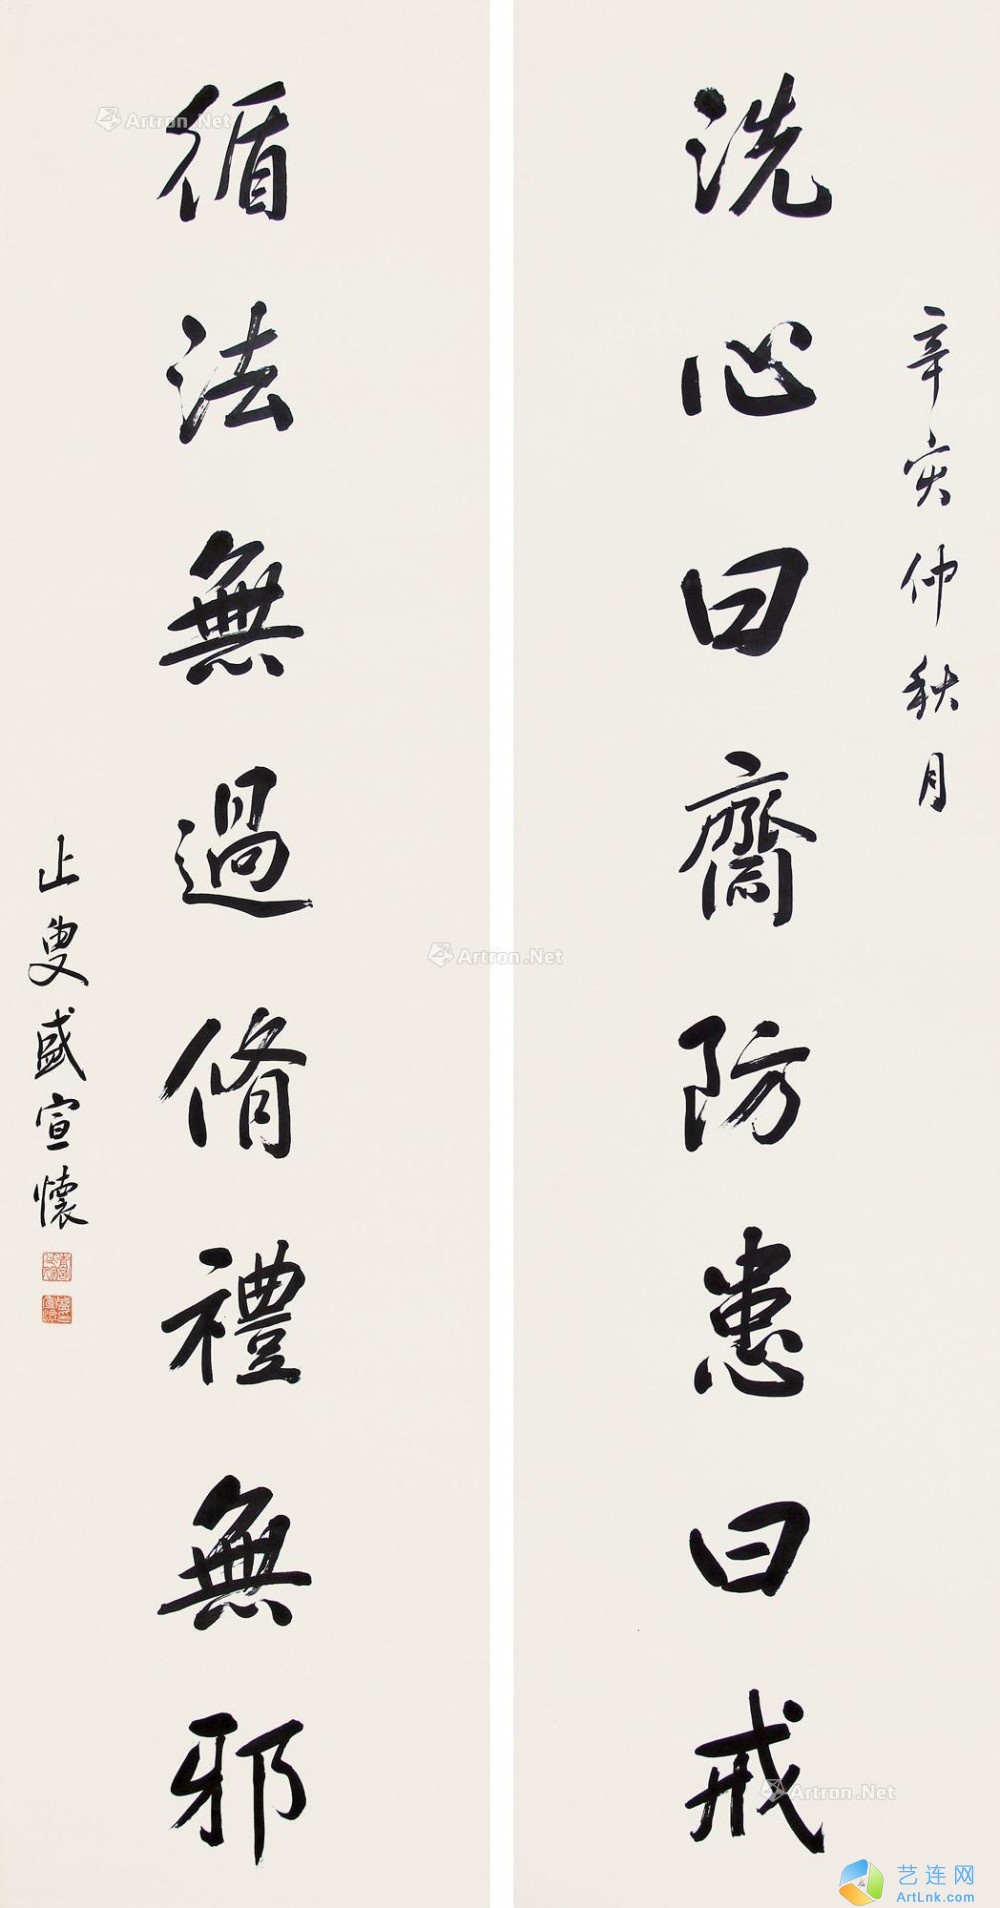 辛亥仲秋月
洗心曰齋防患曰戒
循法無過脩禮無邪
止叟盛宣懷
Artron.Net
Artron.Net
Artron.Net
艺连网
ArtLnk.com